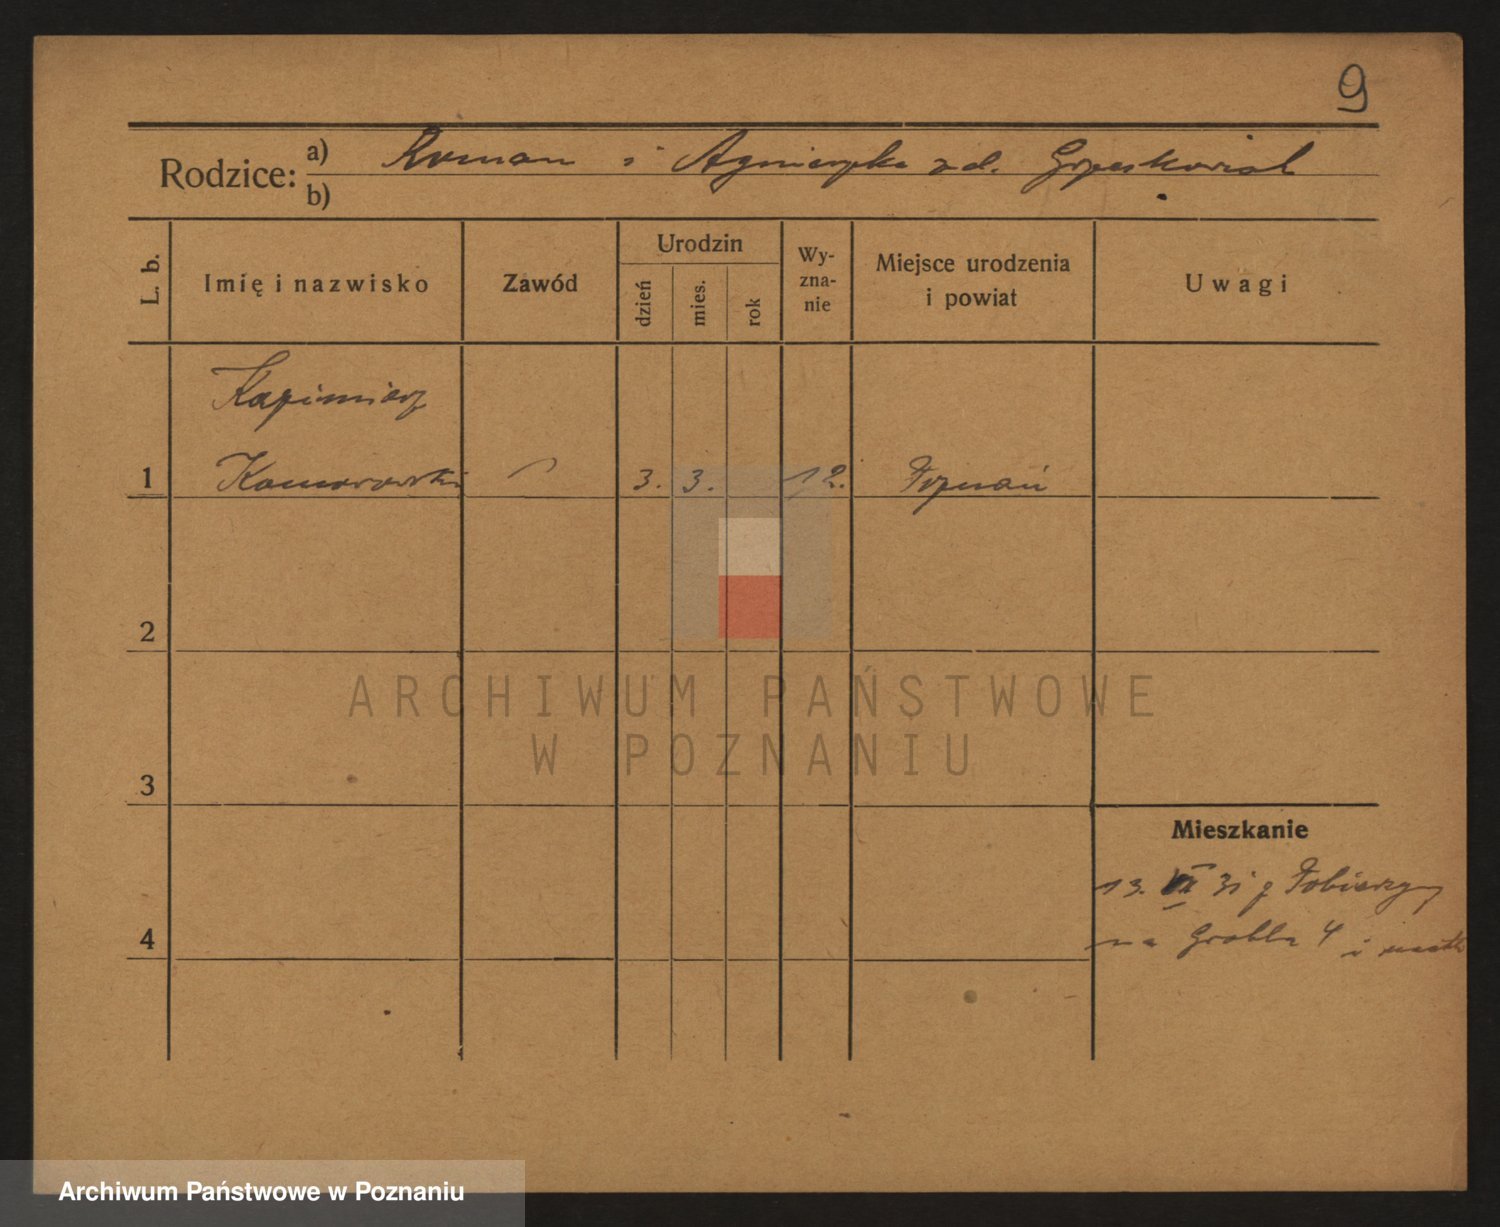 9
Rodzice: a) Roman i Agnieszka zd. Grześkowiak
b)
L. b.
Imię i nazwisko
Zawód
Urodzin
dzień
mies.
rok
Wy-
zna-
nie
Miejsce urodzenia
i powiat
Uwagi
Kazimierz
1 Komorowski 3. 3. 12. Poznań
2
3
4
Mieszkanie
13. 31 z
na Grobla 4 i
ARCHIWUM PAŃSTWOWE
W POZNANIU
Archiwum Państwowe w Poznaniu